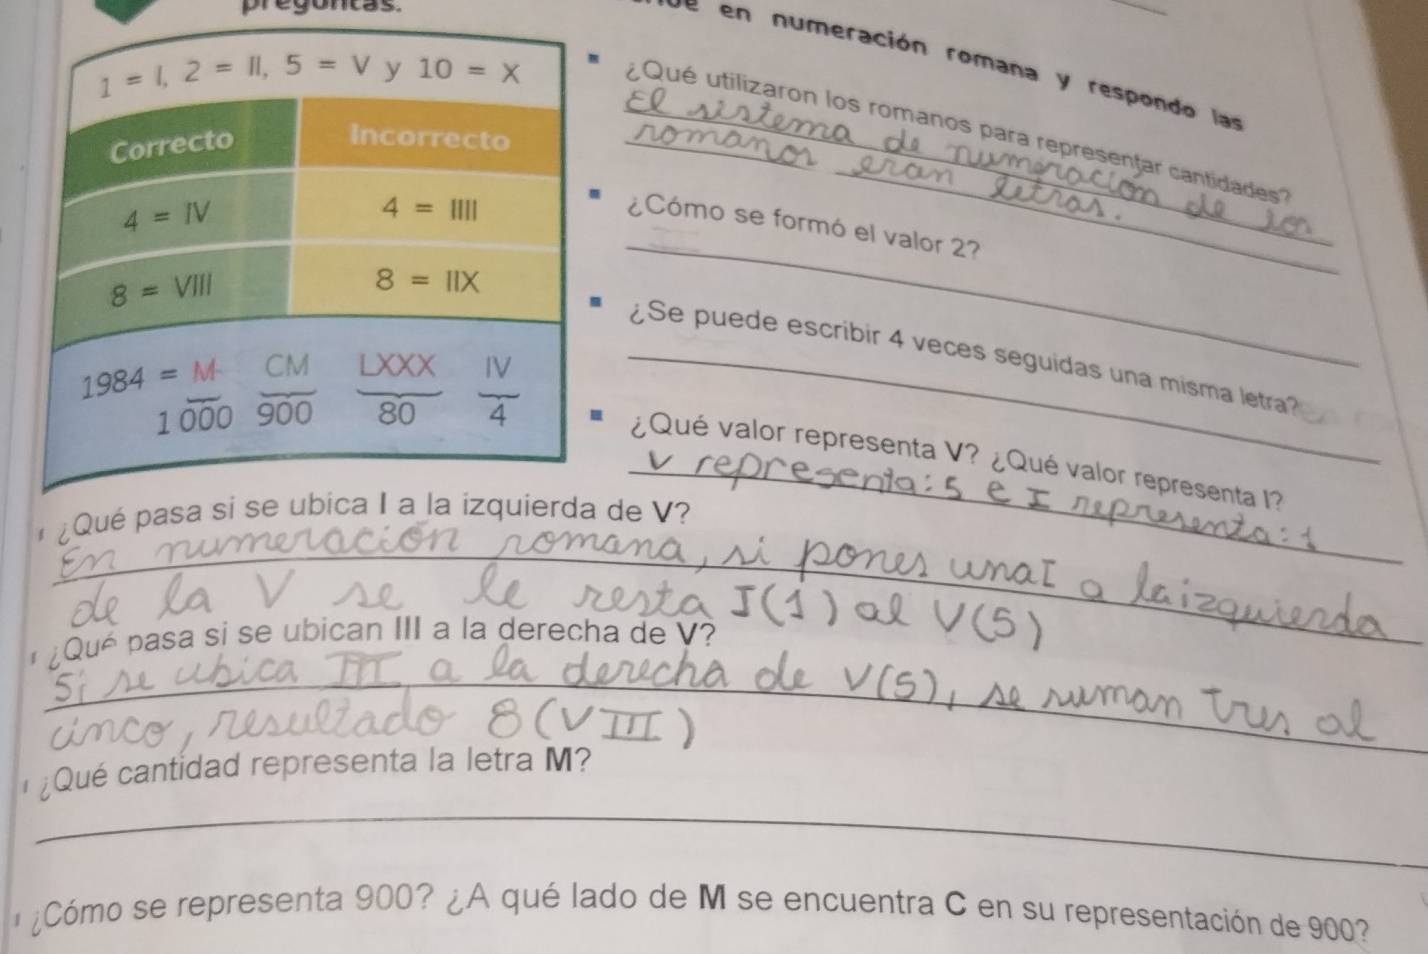 preguntas.
en numeración romana y respondo las
1 = I, 2 = II, 5 = V y 10 = X
Correcto Incorrecto
4 = IV 4 = IIII
8 = VIII 8 = IIX
1984 = M CM LXXX IV
1 000 900 80 4
¿Qué utilizaron los romanos para representar cantidades?
El sistema de numeracion de los
romanos eran letras.
¿Cómo se formó el valor 2?
¿Se puede escribir 4 veces seguidas una misma letra?
¿Qué valor representa V? ¿Qué valor representa I?
V representa: 5 e I representa: 1
¿Qué pasa si se ubica I a la izquierda de V?
En numeración romana, si pones una I a la izquierda
de la V se le resta I(1) al V(5)
¿Qué pasa si se ubican III a la derecha de V?
Si se ubica III a la derecha de V(5), se suman tres al
cinco, resultado 8 (VIII)
¿Qué cantidad representa la letra M?
¿Cómo se representa 900? ¿A qué lado de M se encuentra C en su representación de 900?